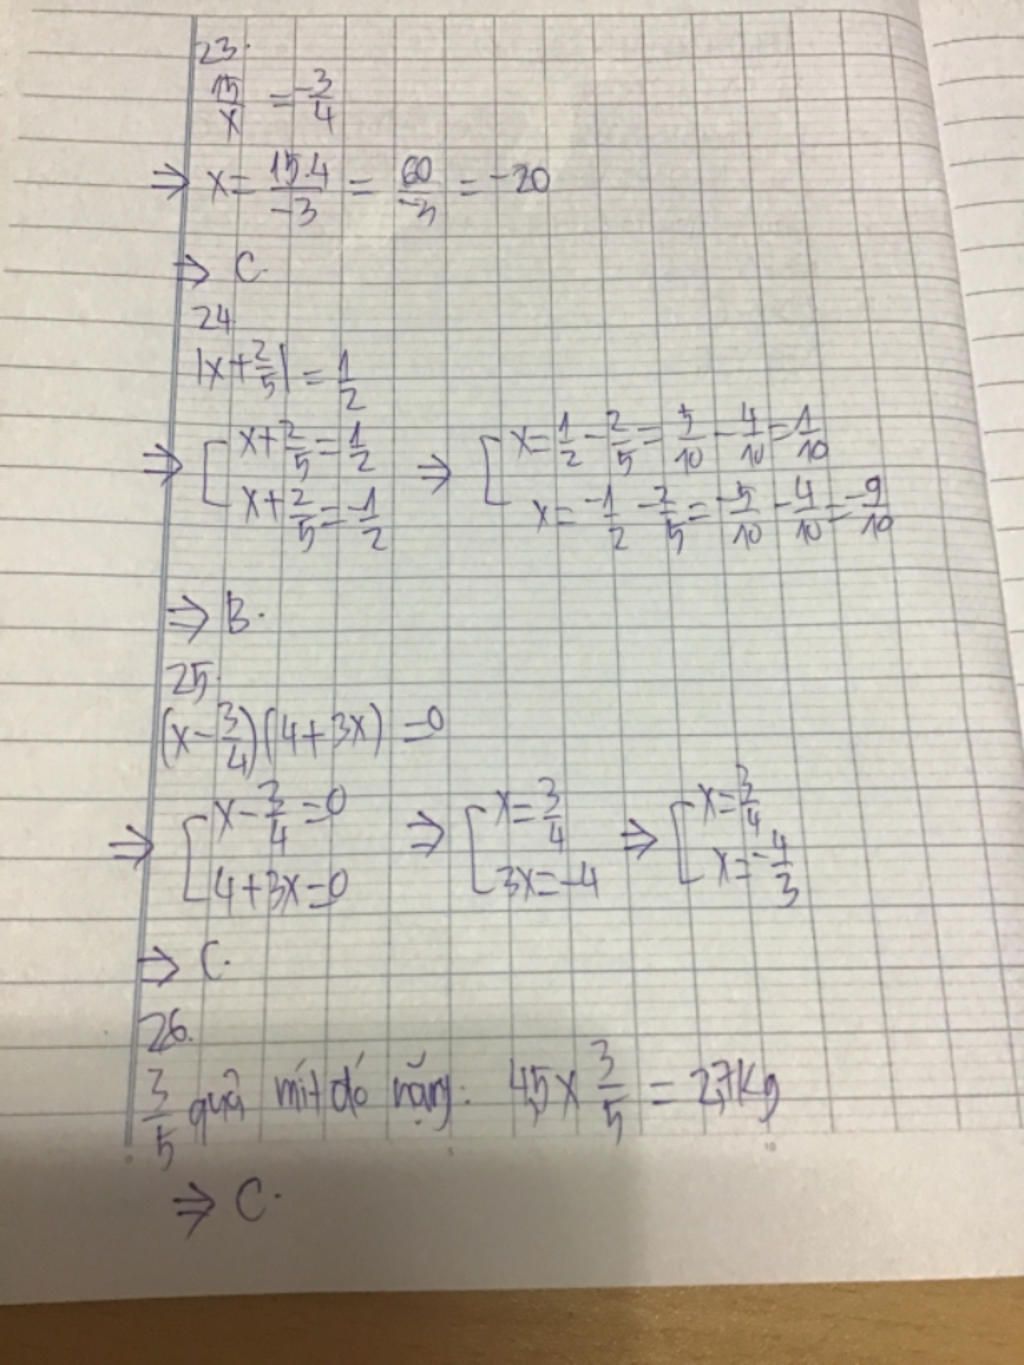 23.
15/x = -3/4
⇒ x = 15.4/-3 = 60/-3 = -20
⇒ C.
24
|x + 2/5| = 1/2
⇒ [ x + 2/5 = 1/2 ⇒ [ x = 1/2 - 2/5 = 5/10 - 4/10 = 1/10
x + 2/5 = -1/2 x = -1/2 - 2/5 = -5/10 - 4/10 = -9/10
⇒ B.
25
(x - 3/4)(4 + 3x) = 0
⇒ [ x - 3/4 = 0 ⇒ [ x = 3/4 ⇒ [ x = 3/4
4 + 3x = 0 3x = -4 x = -4/3
⇒ C.
26.
3/5 quả mít đó nặng: 4,5 x 3/5 = 2,7 Kg
⇒ C.